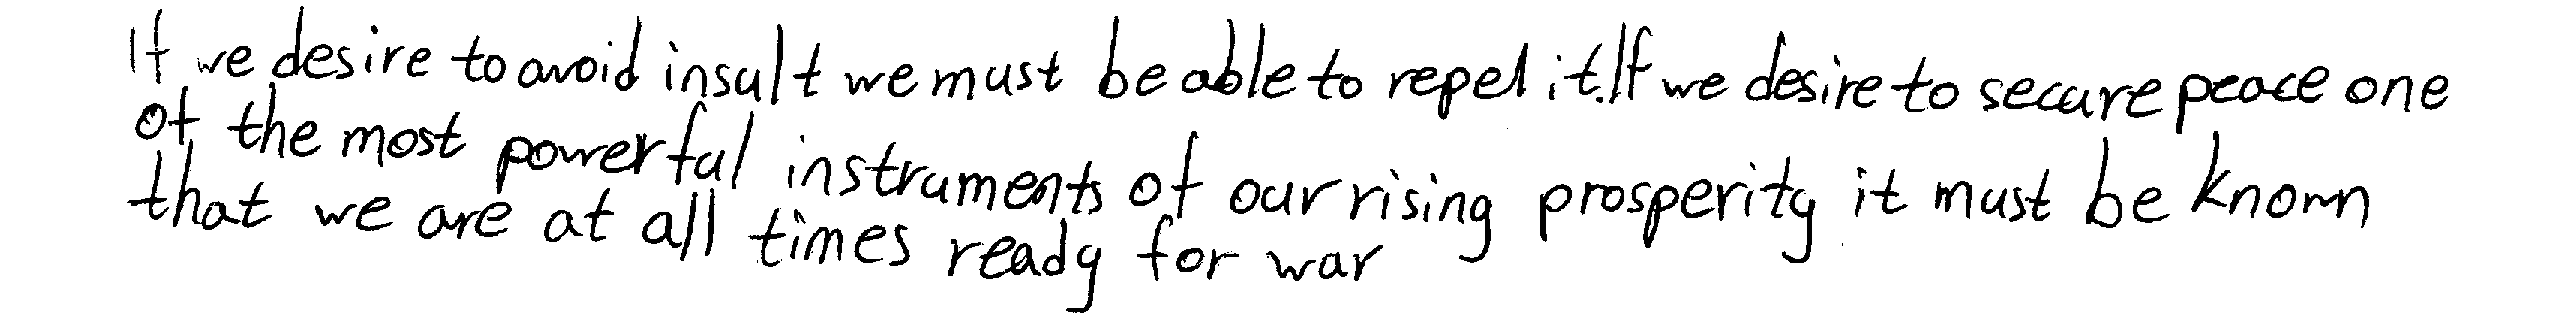 If we desire to avoid insult we must be able to repel it. If we desire to secure peace one
of the most powerful instruments of our rising prosperity it must be known
that we are at all times ready for war